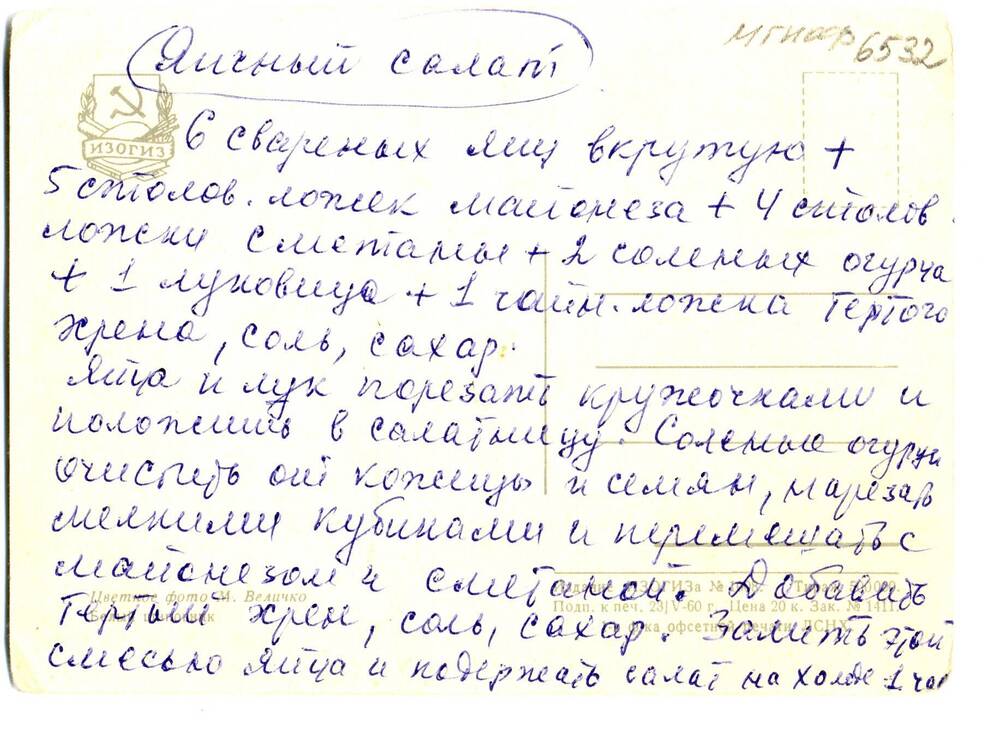 МГИАФ 6532
Яичный салат
ИЗОГИЗ
6 свареных яиц вкружую +
5 столов. ложек майонеза + 4 столов.
ложки сметаны + 2 соленых огурча
+ 1 луковица + 1 чайн. ложка тертого
хрена, соль, сахар.
Яйца и лук порезать кружочками и
положить в салатницу. Соленые огурци
очистить от кожицы и семян, нарезать
мелкими кубиками и перемешать с
майонезом и сметаной. Добавить
Цветное фото И. Величко
Подп. к печ. 23|V-60 г. Цена 20 к. Зак. № 1411
тертый хрен, соль, сахар. Залить этой
офсетной печати ЛСНХ
смесью яйца и подержать салат на холоде 1 час